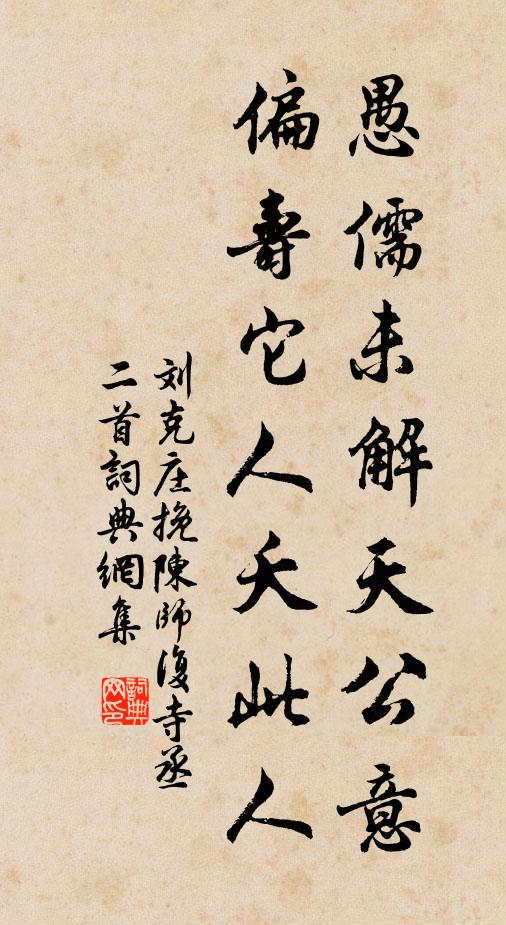 愚儒未解天公意
偏壽它人夭此人
刘克庄挽陳師復寺丞
二首詞典網集
詞典
网印